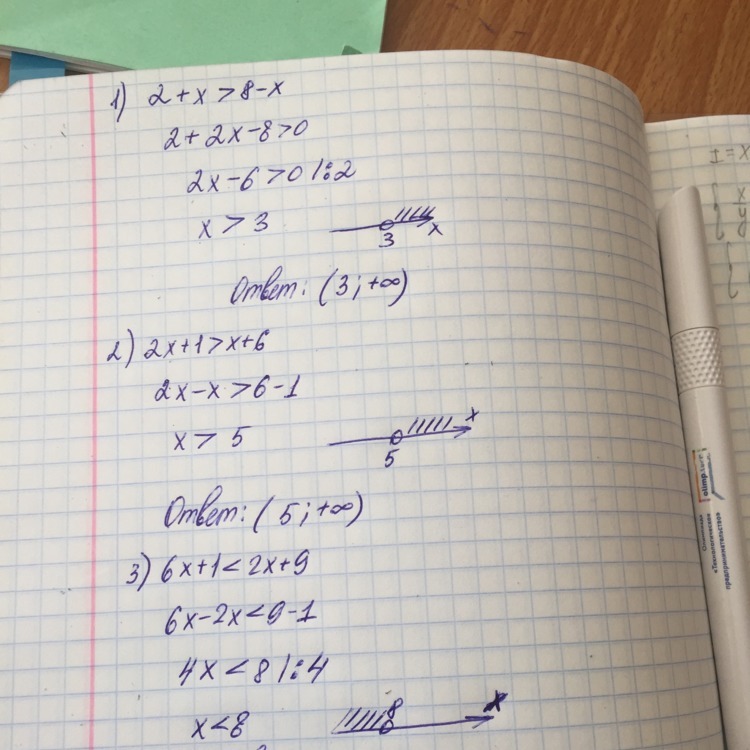 1) 2+x>8-x
2+2x-8>0
2x-6>0 |:2
x>3
3 x
Ответ: (3; +∞)
2) 2x+1>x+6
2x-x>6-1
x>5
5 x
Ответ: (5; +∞)
3) 6x+1<2x+9
6x-2x<9-1
4x<8 |:4
x<8
8 x
olimp
Олимпиада
«Технологическое
предпринимательство»